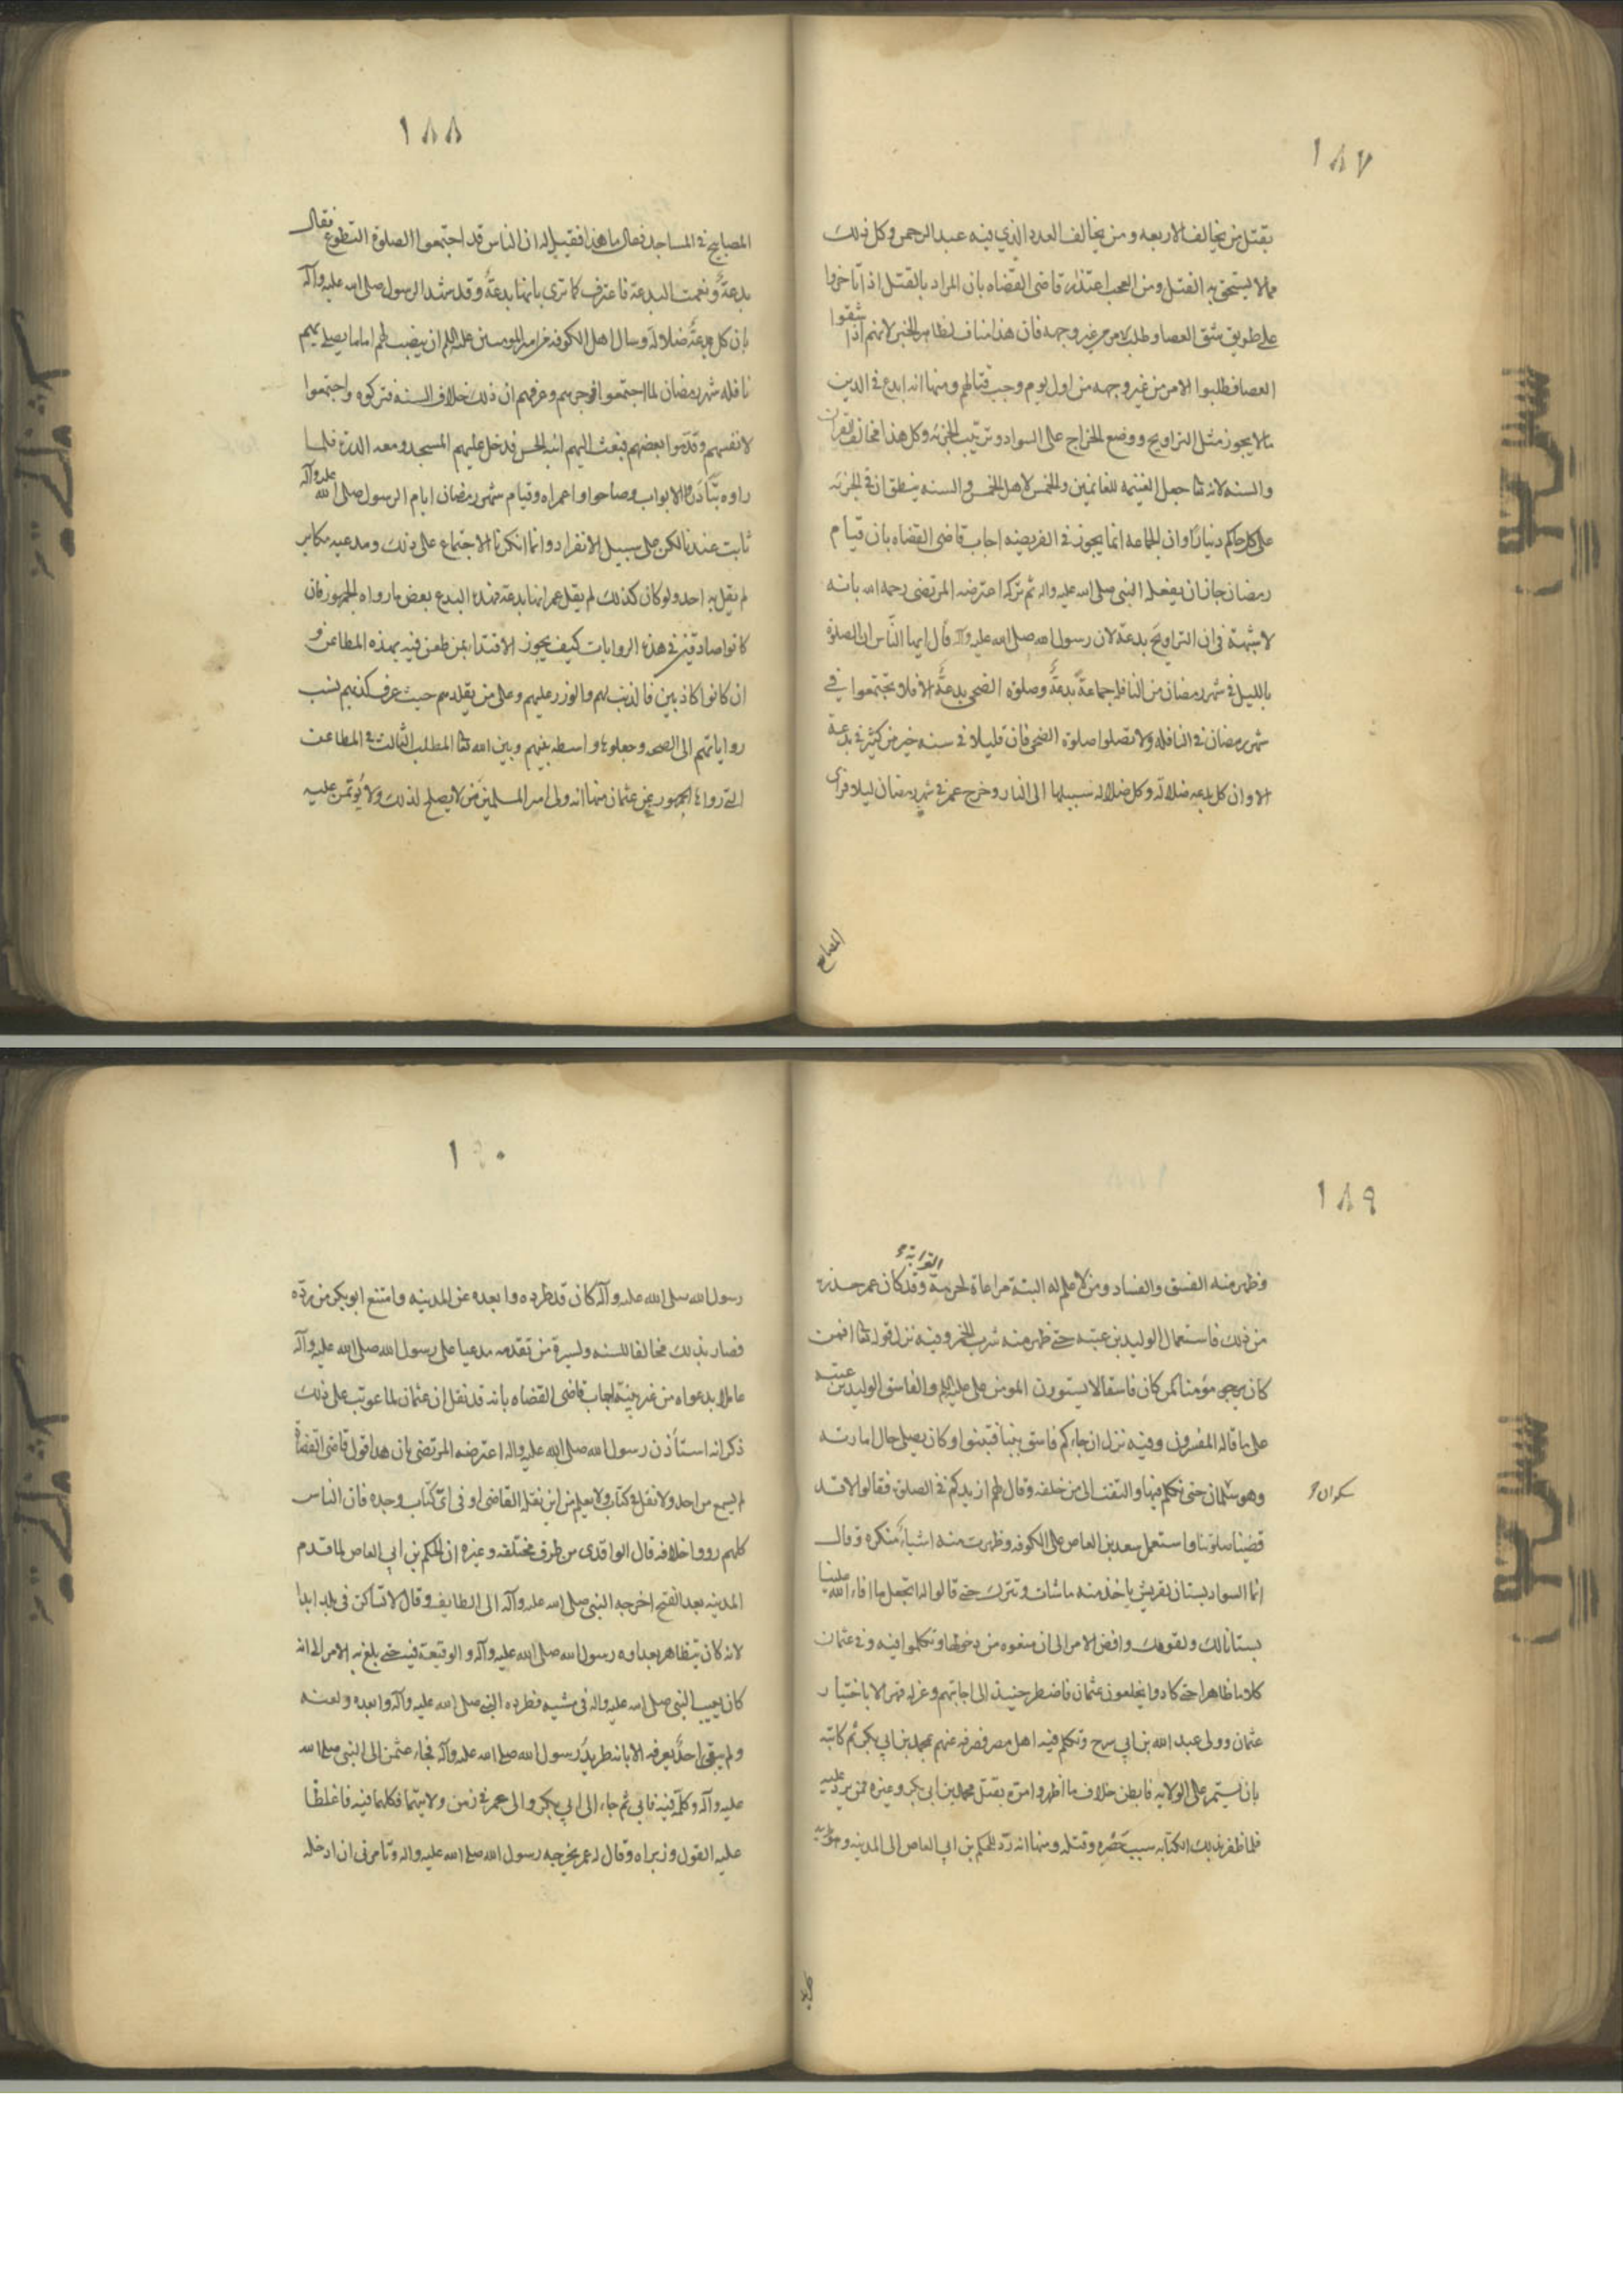 ١٨٧
بقتل من يخالف الاربعه و من يخالف العدد الذي فيه عبد الرحمن و كل ذلك
مما لا يستحق به القتل و من العجب اعتذار قاضى القضاه بان المراد بالقتل اذا تاخروا
على طريق شق العصا و طلب الامر من غير وجهه فان هذا مناف لظاهر الخبر لانهم اذا شقوا
العصا فطلبوا الامر من غير وجهه من اول يوم وجب قتالهم و منها انه ابدع فى الدين
ما لا يجوز مثل التراويح و وضع الخراج على السواد و ترتيب الجزية و كل هذا مخالف القران
و السنه لانه تعا جعل الغنيمه للغانمين و الخمس لاهل الخمس و السنه ينطق ان فى الجزيه
على كل حاكم دينارًا و ان الجماعه انما يجوز فى الفريضه اجاب قاضى القضاه بان قيام
رمضان جاز ان يفعله النبى صلى الله عليه واله ثم تركه اعترضه المرتضى رحمه الله بانه
لا شبهة فى ان التراويح بدعة لان رسول الله صلى الله عليه وآله قال ايها النّاس ان الصلوة
بالليل فى شهر رمضان من النافله جماعةً بدعةٌ و صلوة الضحى بدعةٌ الا فلا تجتمعوا فى
شهر رمضان فى النافله و لا تصلوا صلوة الضحى فان قليلا فى سنه خير من كثير فى بدعة
الا و ان كل بدعه ضلالة و كل ضلاله سبيلها الى النار و خرج عمر فى شهر رمضان ليلا فرأى
المصابيح
١٨٨
المصابيح فى المساجد فقال ما هذا فقيل له ان الناس قد اجتمعوا الصلوة التطوع فقال
بدعةٌ و نعمت البدعة فاعترف كما ترى بانها بدعةٌ و قد شهد الرسول صلى الله عليه وآله
بان كل بدعةٌ ضلالة و سال اهل الكوفه من امير المومنين عليه السلم ان ينصب لهم اماما يصلى بهم
نافله شهر رمضان لما اجتمعوا فزجرهم و عرفهم ان ذلك خلاف السنه فتركوه و اجتمعوا
لانفسهم و قدّموا بعضهم فبعث اليهم ابنه الحسن فدخل عليهم المسجد و معه الدرة فلما
راوه تبادروا الابواب و صاحوا وا عمراه و قيام شهر رمضان ايام الرسول صلى الله عليه وآله
ثابت عندنا لكن على سبيل الانفراد و انما انكرنا الاجتماع على ذلك و مدعيه مكابر
لم يقل به احد و لو كان كذلك لم يقل عمر انها بدعة فهذه البدع بعض ما رواه الجمهور فان
كانوا صادقين فى هذه الروايات كيف يجوز الاقتداء بمن طعن فيه بهذه المطاعن و
ان كانوا كاذبين فالذنب لهم و الوزر عليهم و على من يقلدهم حيث عرف كذبهم بنسب
رواياتهم الى الصحه و جعلوها واسطه بينهم و بين الله تعا المطلب الثالث فى المطاعن
التى رواها الجمهور عن عثمان منها انه ولى امر المسلمين من لا يصلح لذلك و لا يؤتمن عليه
١٨٩
و ظهر منه الفسق و الفساد و من لا علم له البتة مراعاة لحرمة القرابة و قد كان عمر حذره
من ذلك فاستعمال الوليد بن عتبه حتى ظهر منه شرب الخمر و فيه نزل قوله تعا افمن
كان يرجو مؤمنا كمن كان فاسقا لا يستوون المومن على عليه السلم و الفاسق الوليد بن عتبه
على ما قاله المفسرون و فيه نزل ان جاءكم فاسق بنبا فتبينوا و كان يصلى حال امارته
و هو سكران حتى تكلم فيها و التفت الى من خلفه و قال لهم ازيدكم فى الصلوة فقالوا لا قد
سكران
قضينا صلوتنا و استعمل سعد بن العاص على الكوفه و ظهرت منه اشياءً منكره و قال
انما السواد بستان لقريش ياخذ منه ما شات و تترك حتى قالوا له اتجعل ما افاء الله علينا
بستانا لك و لقومك و افضى الامر الى ان منعوه من دخولها و تكلموا فيه و فى عثمان
كلاما ظاهرا حتى كادوا يخلعون عثمان فاضطر حينئذ الى اجابتهم و عزله قهر الا باختيار
عثمان و ولى عبد الله بن ابى سرح و تكلم فيه اهل مصر فصرفه عنهم بمحمد بن ابى بكر ثم كاتبه
بان يستمر على الولايه فابطن خلاف ما اظهر و امره بقتل محمد بن ابى بكر و غيره ممن يرد عليه
فلما ظفر بذلك الكتابه سبب حصره و قتله و منها انه ردّ الحكم بن ابى العاص الى المدينه و
١٩٠
رسول الله صلى الله عليه وآله كان قد طرده و ابعده عن المدينه و امتنع ابو بكر من ردّه
فصار بذلك مخالفا للسنه و لسيرة من تقدمه مدعيا على رسول الله صلى الله عليه وآله
عاملا بدعواه من غير بينة اجاب قاضى القضاه بانه قد نقل ان عثمان لما عوتب على ذلك
ذكر انه استأذن رسول الله صلى الله عليه واله اعترضه المرتضى بان هذا قول قاضى القضاة
لم يسمع من احد و لا نقل فى كتاب و لا يعلم من اين نقله القاضى او فى اىّ كتاب وجده فان الناس
كلهم رووا خلافه قال الواقدى من طرق مختلفه و غيره ان الحكم بن ابى العاص لما قدم
المدينه بعد الفتح اخرجه النبى صلى الله عليه وآله الى الطايف و قال لا تساكن فى بلد ابدا
لانه كان يتظاهر بعداوه رسول الله صلى الله عليه وآله و الوقيعة فيه حتى بلغ به الامر الى انه
كان يعيب النبى صلى الله عليه واله فى مشيه فطرده النبى صلى الله عليه وآله و ابعده و لعنه
و لم يبق احدٌ يعرفه الا بانه طريد رسول الله صلى الله عليه وآله فجاء عثمن الى النبى صلى الله
عليه وآله و كلّمه فيه فابى ثم جاء الى ابى بكر و الى عمر فى زمن ولايتهما فكلمهما فيه فاغلظا
عليه القول و زبراه و قال له عمر يخرجه رسول الله صلى الله عليه واله و تامرنى ان ادخله